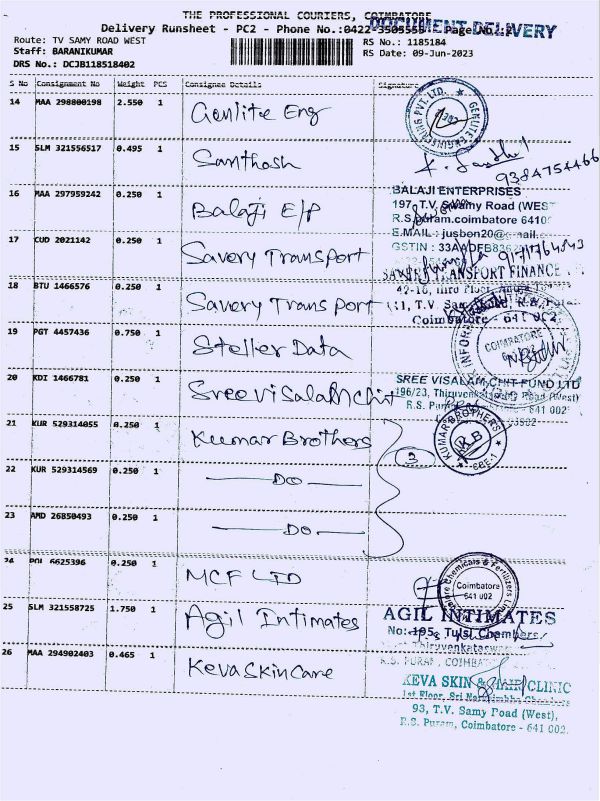 THE PROFESSIONAL COURIERS, COIMBATORE
DOCUMENT DELIVERY
Delivery Runsheet - PC2 - Phone No.:0422-3505555 Page No.:2
Route: TV SAMY ROAD WEST
RS No.: 1185184
Staff: BARANIKUMAR
RS Date: 09-Jun-2023
DRS No.: DCJB118518402
S No Consignment No Weight PCS Consignee Details Signature
14 MAA 298800198 2.550 1 Genlite Eng
15 SLM 321556517 0.495 1 Santhosh
9384754466
16 MAA 297959242 0.250 1 Balaji E/P
BALAJI ENTERPRISES
197, T.V. Swamy Road (WEST
R.S. Puram.coimbatore 6410
E.MAIL : jusbon20@
GSTIN : 33AADFB836
17 CUD 2021142 0.250 1 Savery Transport
9171764543
SAVERY TRANSPORT FINANCE
18 BTU 1466576 0.250 1 Savery Transport
Coimbatore - 641 002
19 PGT 4457436 0.750 1 Steller Data
COIMBATORE
20 KDI 1466781 0.250 1 Sree Visalam chit
SREE VISALAM CHIT FUND LTD
196/23, Thiruvenkatasamy Road (West)
R.S. Puram, 641 002
21 KUR 529314055 0.250 1 Kumar Brothers
KUMAR BROTHERS
K.B
CBE-1
3
22 KUR 529314569 0.250 1 DO
23 AMD 26850493 0.250 1 DO
24 POL 6625396 0.250 1 MCF LTD
Chemicals & Fertilizers
Coimbatore
641 002
25 SLM 321558725 1.750 1 Agil Intimates
AGIL INTIMATES
No: 195, Tulsi Chambers
Thiruvenkataswamy
R.S. PURAM, COIMBAT
26 MAA 294902403 0.465 1 Keva Skin Care
KEVA SKIN & HAIR CLINIC
1st Floor, Sri Narasimha Chambers
93, T.V. Samy Road (West),
R.S. Puram, Coimbatore - 641 002.